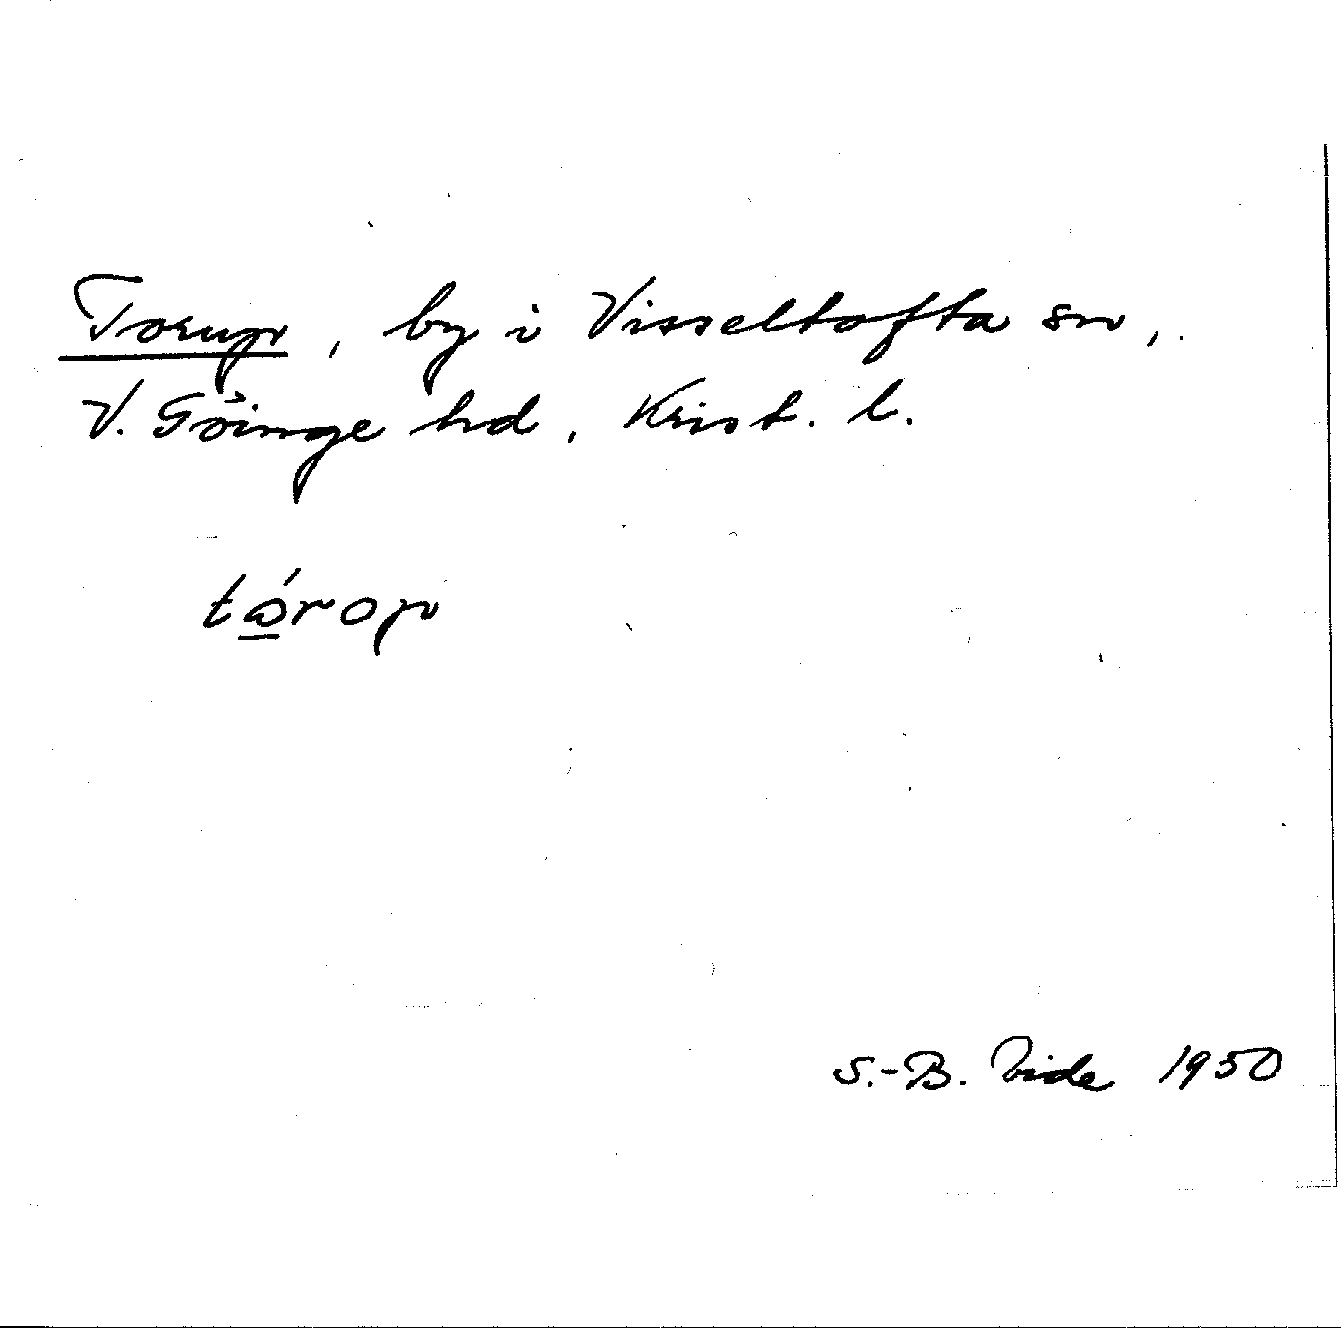 Torup, by i Visseltofta sn,
V. Göinge hd, Krist. l.
tórop
S.-B. Vide 1950